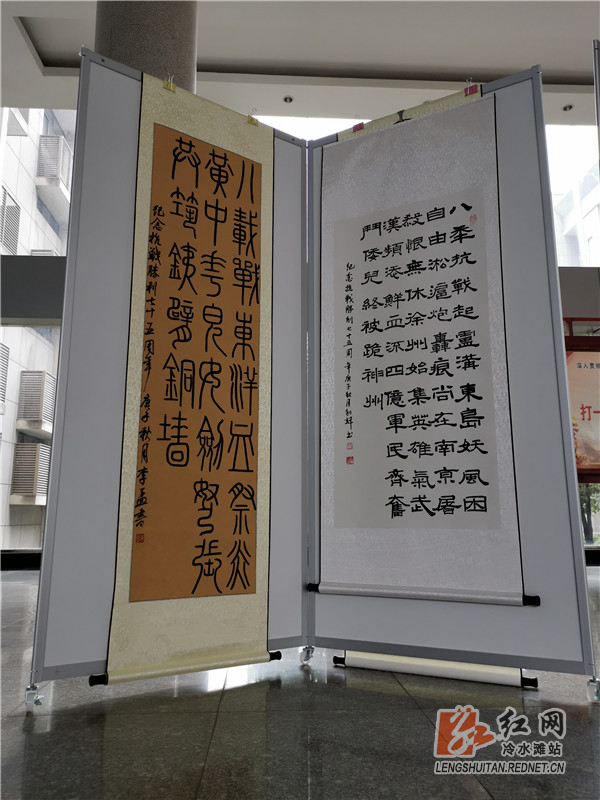 八載戰東洋血祭炎
黃中華兒女劍弩張
共筑銕臂銅墙
纪念抗戰勝利七十五周年 庚子秋月李孟
八年抗戰起盧溝東島妖風困
自由淞滬炮轟痕尚在南京屠
殺恨無休徐州始集英雄氣武
漢頻添鮮血流四億軍民齊奮
鬥倭兒終被跪神州
紀念抗戰勝利七十五周年庚子秋月
深入贯
打一
红网
冷水滩站
LENGSHUITAN.REDNET.CN